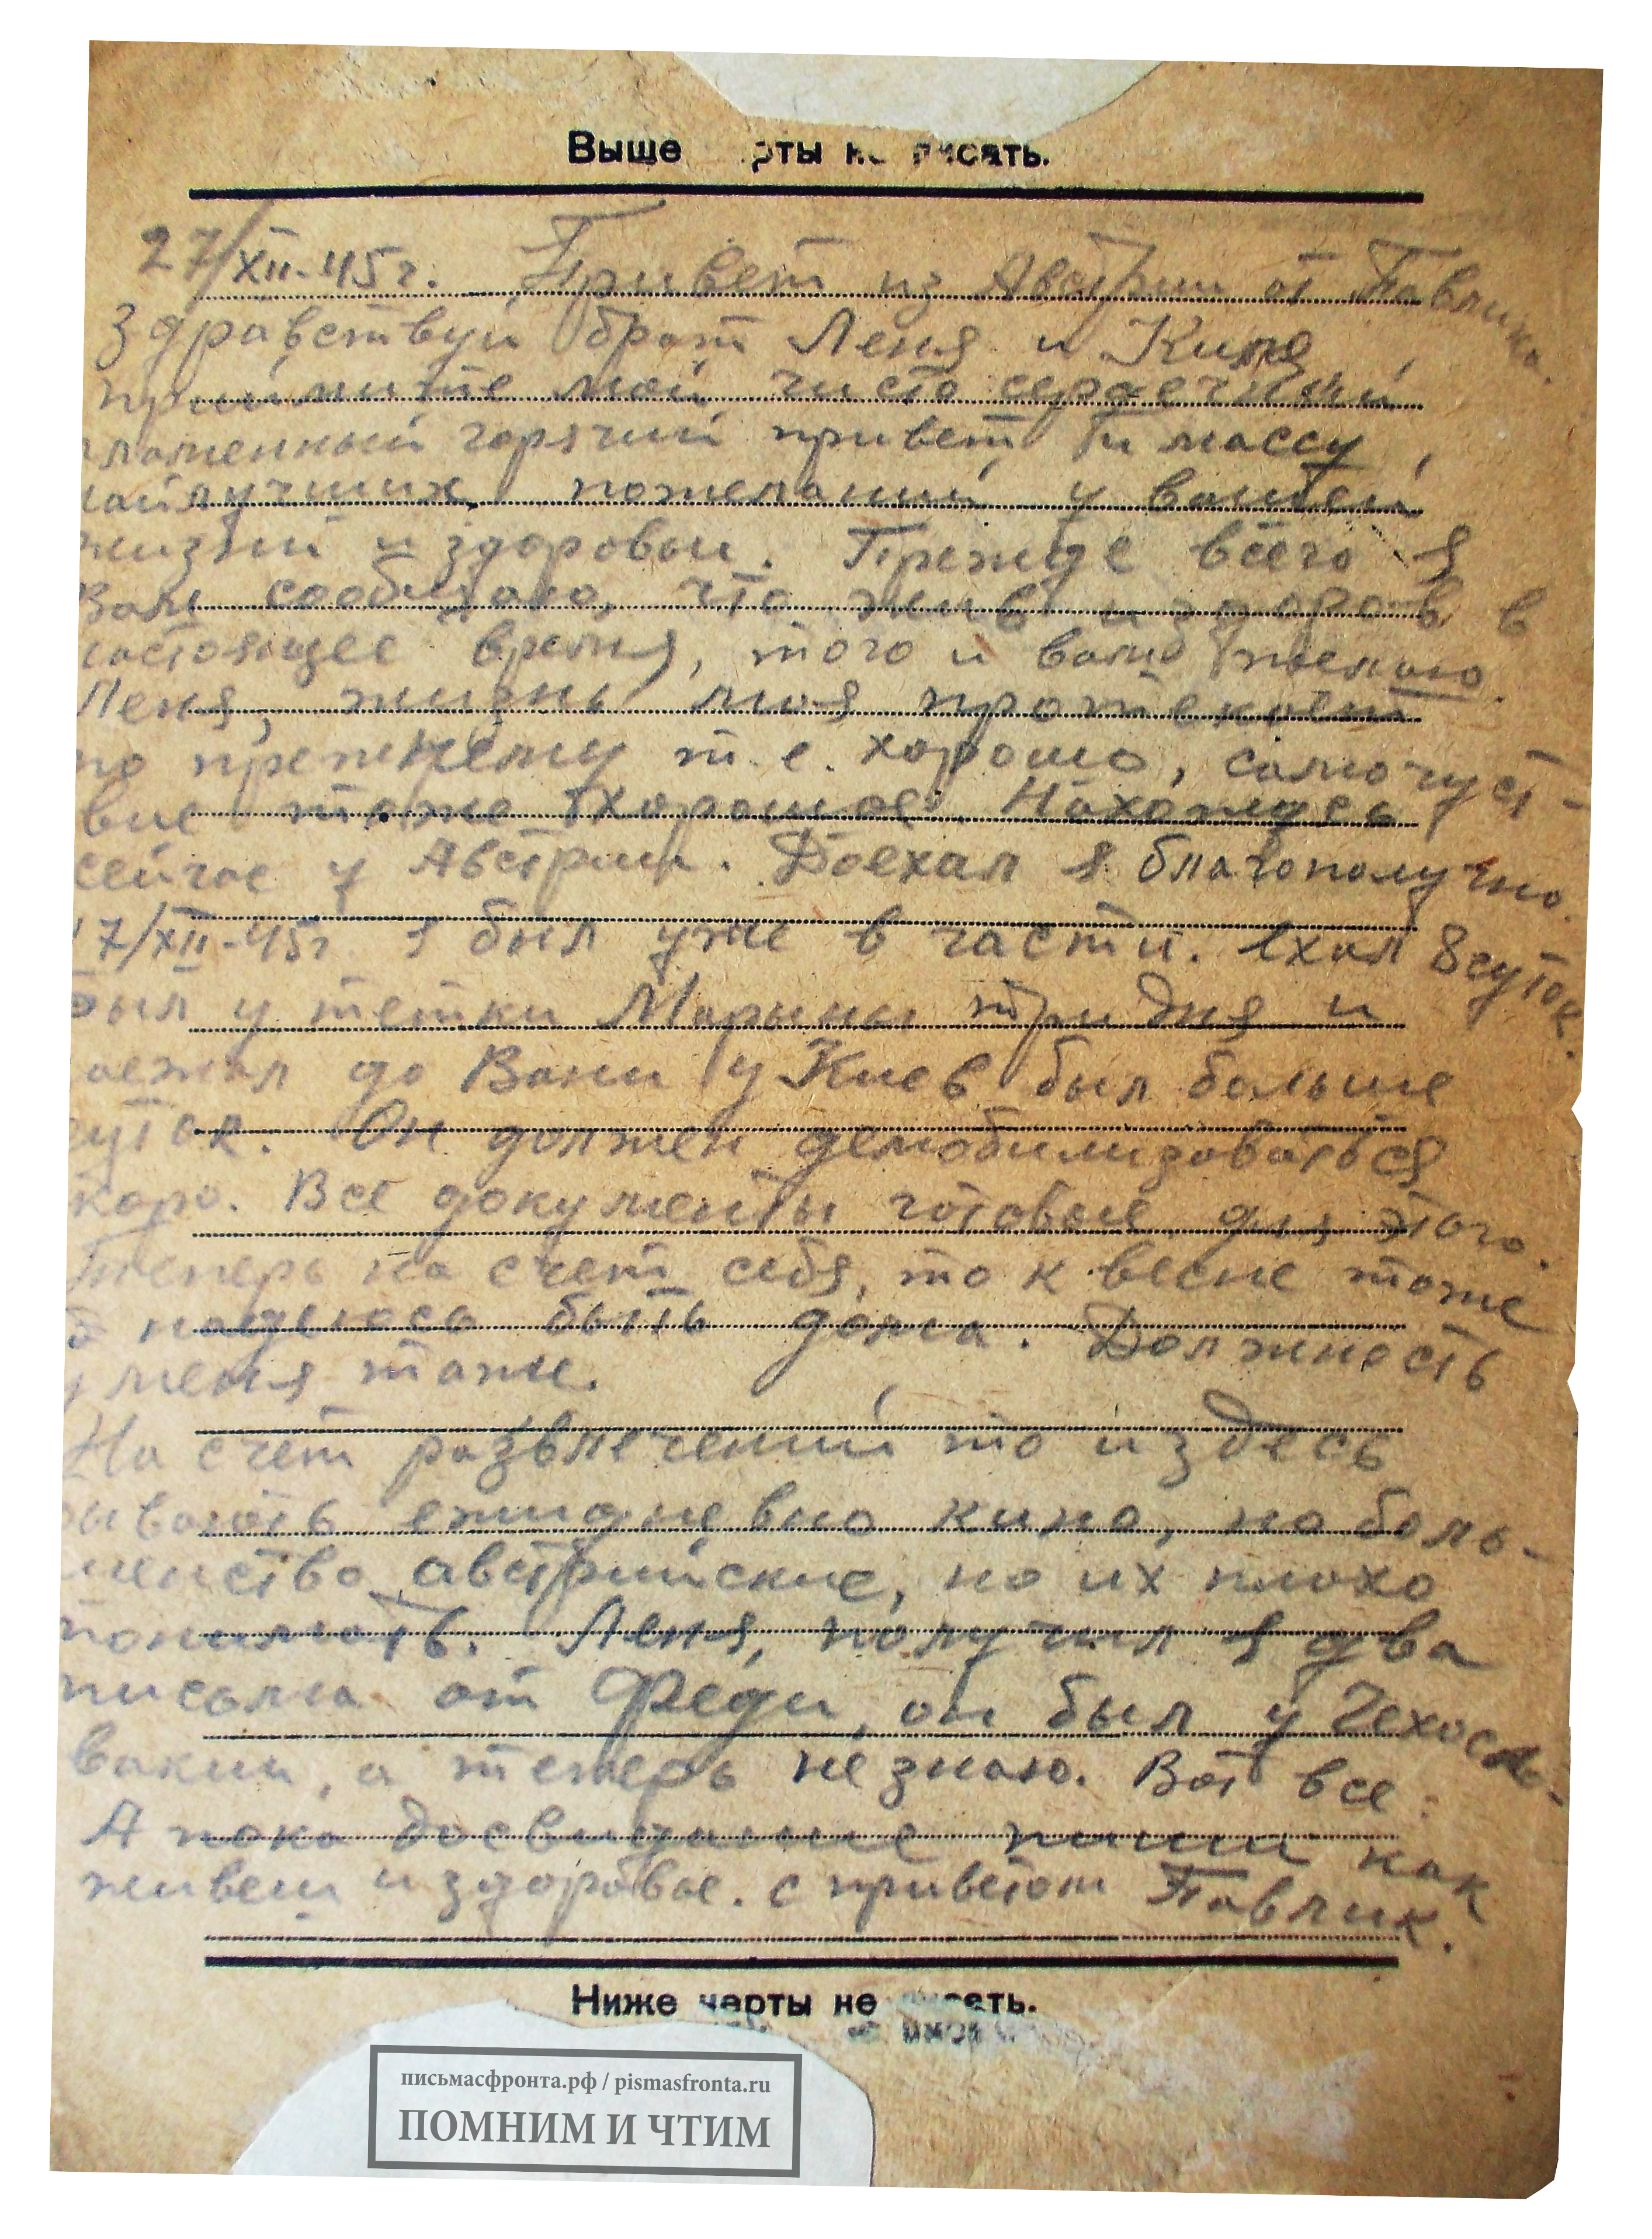 Выше рты не писать.
27/XII-45 г. Привет из Австрии от Павлика.
Здравствуй брат Леня и Киля,
приймите мой чисто сердечный
пламенный горячий привет и массу
найлучших пожеланий у вашей
жизни и здоровьи. Прежде всего я
Вам сообщаю, что жив и здоров в
настоящее время, того и вам желаю.
Леня, жизнь моя протекает
по прежнему т.е. хорошо, самочуст-
вие тоже хорошое. Нахожусь
сейчас у Австрии. Доехал я благополучно.
17/XII-45г. я был уже в части. Ехал 8 суток
был у тетки Марыны три дня и
доежал до Вани у Киев был больше
суток. Он должен демобилизоваться
скоро. Все документы готовые для этого.
Теперь на счет себя, то к весне тоже
надеюсь быть дома. Должность
у меня таже.
На счет развлечений то и здесь
бывають ежидневно кино, но боль-
шенство австрийские, но их плохо
понимать. Леня, получил я два
письма от Феди, он был у Чехосл-
вакии, а теперь не знаю. Вот все.
А пока досвидание пиши как
живеш и здоровье. с приветом Павлик.
Ниже черты не писать.
письмасфронта.рф / pismasfronta.ru
ПОМНИМ И ЧТИМ